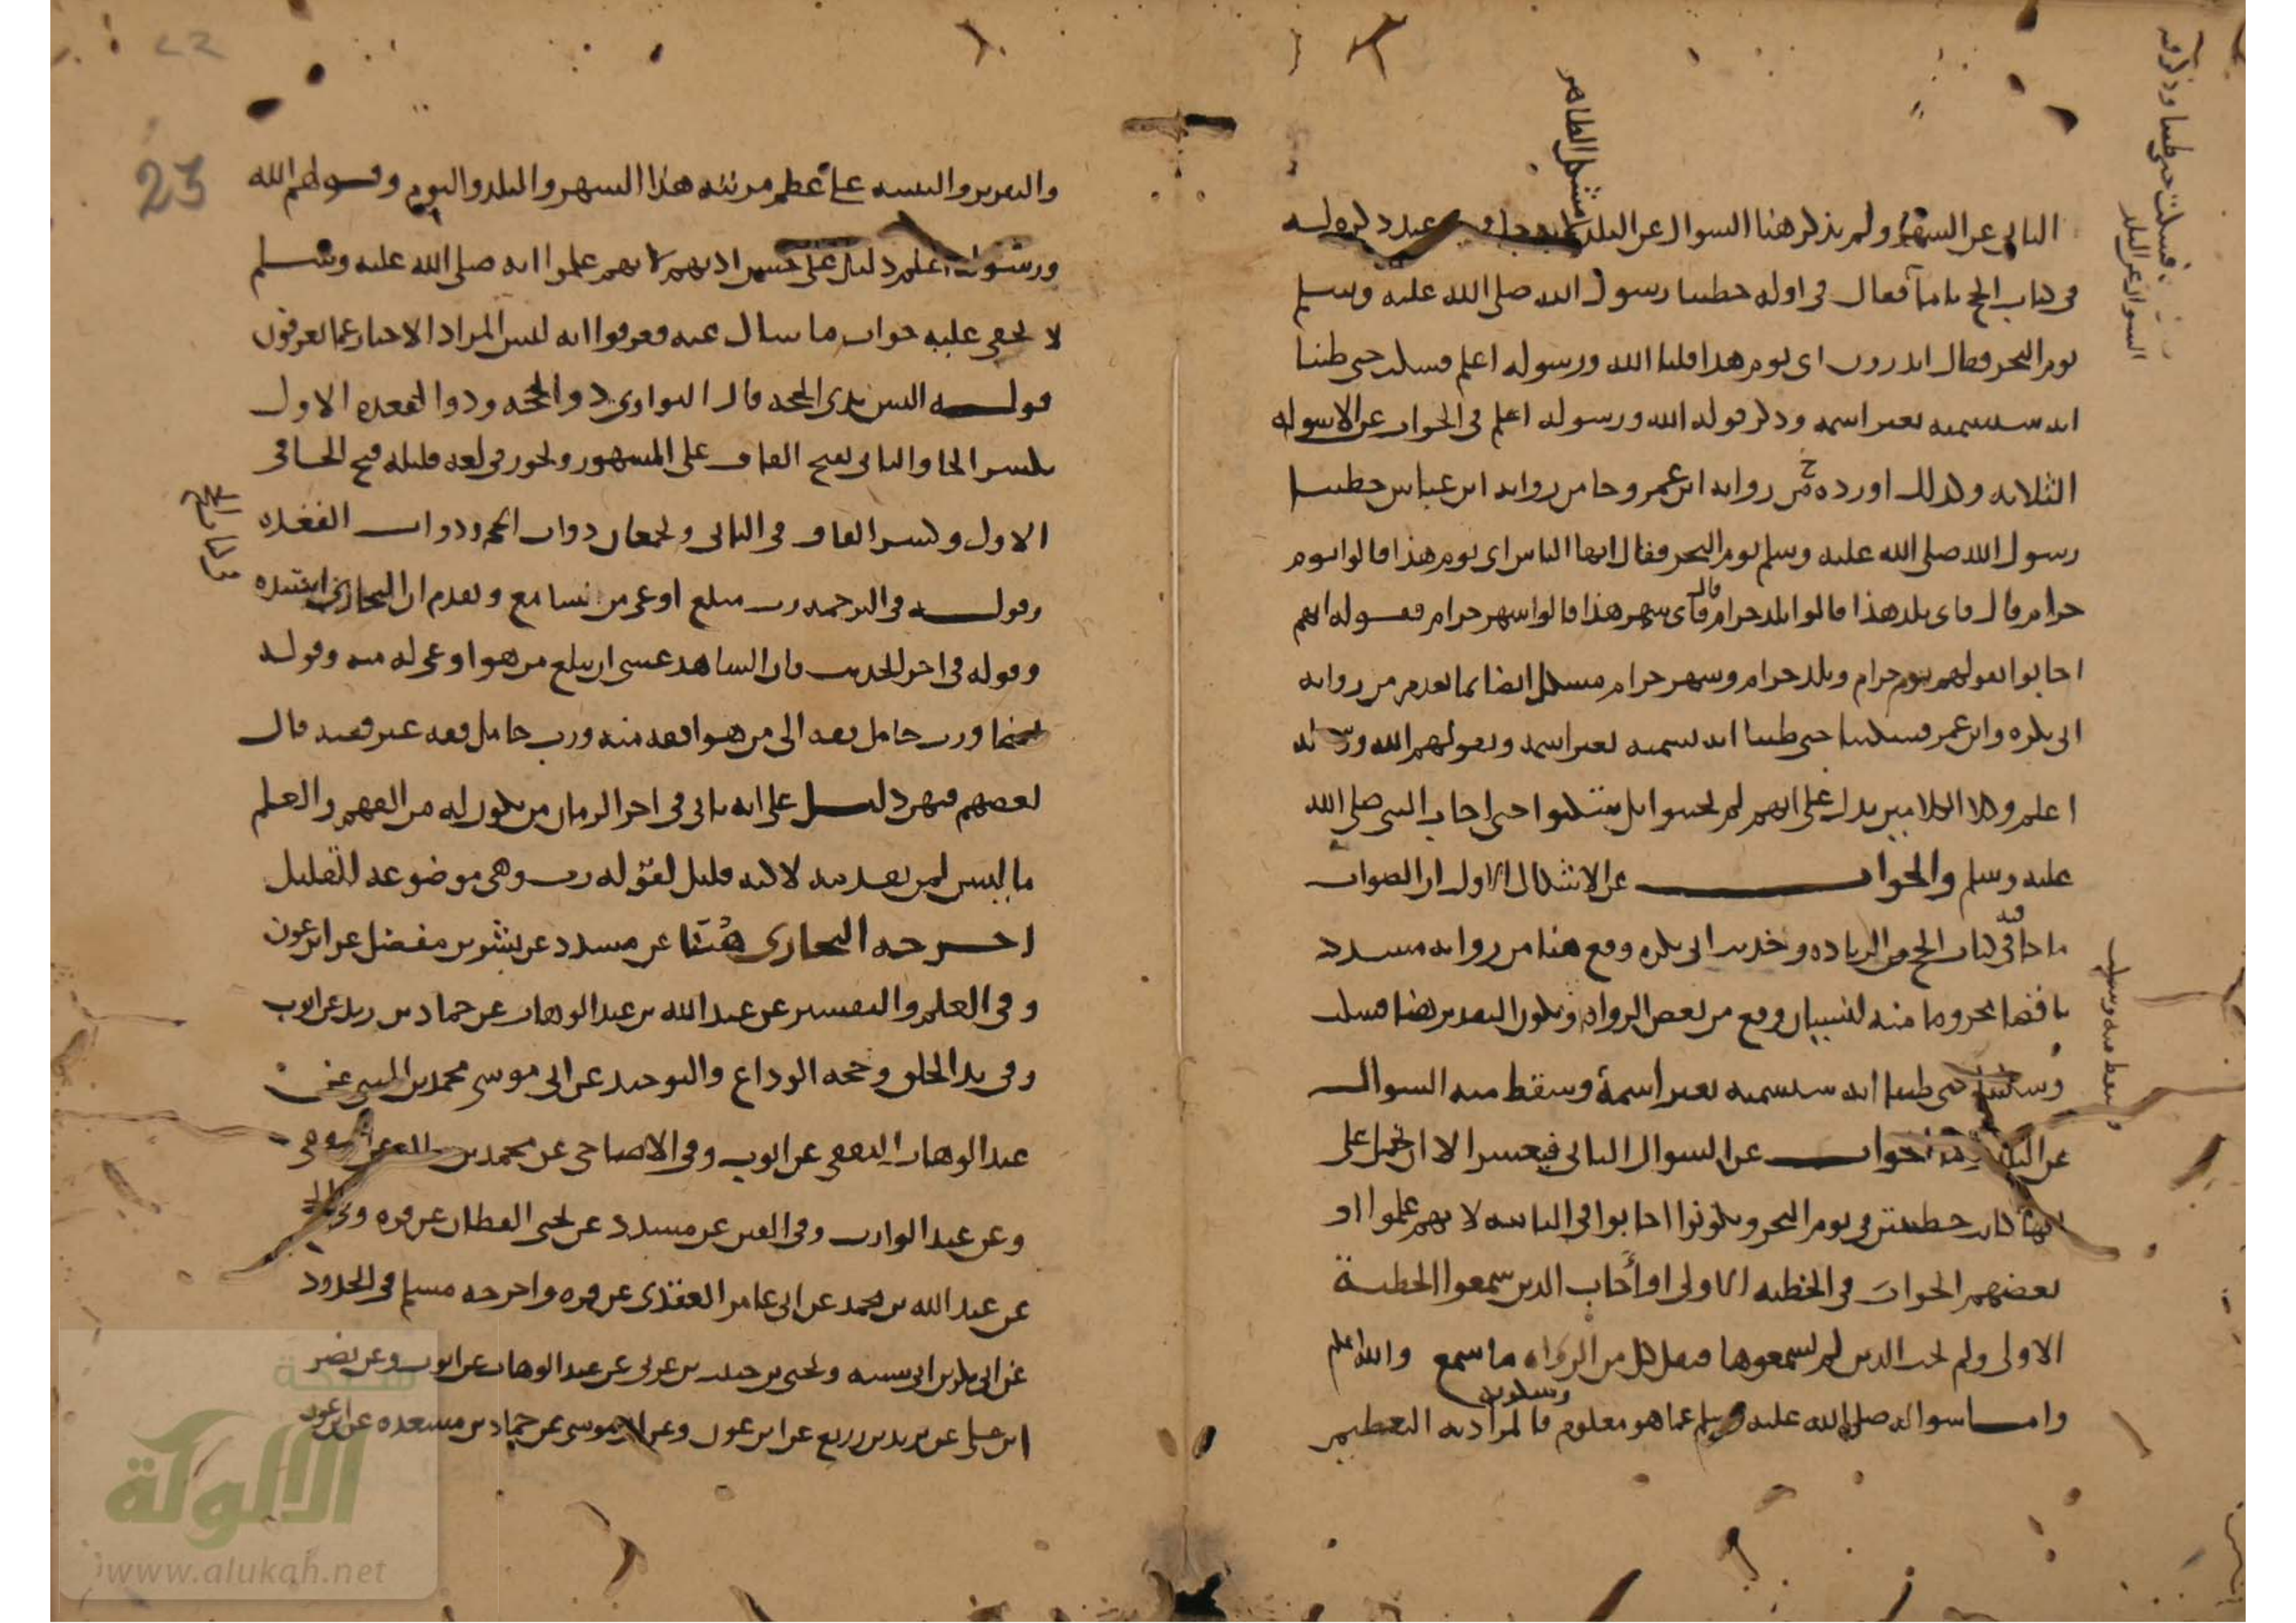 الثاني عن الشهر ولم يذكر هنا السؤال عن البلد عند ذكره له
في كتاب الحج تاما فقال في أوله خطبنا رسول الله صلى الله عليه وسلم
يوم النحر فقال اتدرون اى يوم هذا قلنا الله ورسوله اعلم فسكت حتى ظننا
انه سيسميه بغير اسمه وذكر قوله الله ورسوله اعلم في الجواب عن الاسوله
الثلاثه وكذلك اورده من روايه ابن عمر وجا من روايه ابن عباس خطبنا
رسول الله صلى الله عليه وسلم يوم النحر فقال ايها الناس اى يوم هذا قالوا يوم
حرام قال فاى بلد هذا قالوا بلد حرام قال فاى شهر هذا قالوا شهر حرام فقوله انهم
اجابوا بقولهم يوم حرام وبلد حرام وشهر حرام مشكل ايضا بما تقدم من روايه
ابى بكره وابن عمر فسكتنا حتى ظننا انه يسميه بغير اسمه وبقولهم الله ورسوله
اعلم وكلا الكلامين يدل على انهم لم يجيبوا بل سكتوا حتى اجاب النبي صلى الله
عليه وسلم والجواب عن الاشكال الاول ان الصواب
ما جا في كتاب الحج من الزياده وحديث ابى بكره وقع هنا من روايه مسدد
ناقصا مخروما منه لنسيان وقع من بعض الرواه ويكون التقدير هنا فسكت
وسكتنا حتى ظننا انه سيسميه بغير اسمه وسقط منه السوال
عن السوال الثاني فيعسر الا ان يحمل على
انها كانت خطبتين في يوم النحر ويكونوا اجابوا في الثانيه لانهم علموا او
بعضهم الجواب في الخطبه الاولى او اجاب الذين سمعوا الخطبة
الاولى ولم يجب الذين لم يسمعوها فنقل كل من الرواه ما سمع والله اعلم
واما سواله صلى الله عليه وسلم عما هو معلوم وسكوته فالمراد به التعظيم
مشكل الظاهر
فسكت حتى ظننا وذكر فيه
السوال عن البلد
والتقرير والتنبيه على عظم مرتبه هذا الشهر والبلد واليوم وقولهم الله
ورسوله اعلم دليل على حسن ادبهم لانهم علموا انه صلى الله عليه وسلم
لا يخفى عليه جواب ما سال عنه فعرفوا انه ليس المراد الاخبار عما يعرفون
قوله اليس بذى الحجه قال النواوى ذو الحجه وذو القعده الاول
بكسر الحا والثانى بفتح القاف على المشهور ويجوز في لغه قليله فتح الحا في
الاول وكسر القاف في الثانى ويجمعان ذوات الحج وذوات القعده
وقوله في الترجمه رب مبلغ اوعى من سامع وتقدم ان البخارى اسنده
وقوله في اخر الحديث فان الشاهد عسى ان يبلغ من هو اوعى له منه وقوله
ايضا ورب حامل فقه الى من هو افقه منه ورب حامل فقه غير فقيه قال
بعضهم فيهن دليل على انه ياتى في اخر الزمان من يكون له من الفهم والعلم
ما ليس لمن تقدمه الا انه قليل لقوله رب وهى موضوعه للتقليل
اخرجه البخارى هنا عن مسدد عن بشر بن مفضل عن ابن عون
وفي العلم والتفسير عن عبد الله بن عبد الوهاب عن حماد بن زيد عن ايوب
وفي بدا الخلق وحجه الوداع والتوحيد عن ابى موسى محمد بن المثنى عن
عبد الوهاب الثقفى عن ايوب وفي الاضاحى عن محمد بن
وعن عبد الوارث وفي الفتن عن مسدد عن يحيى القطان عن قره وفي الحج
عن عبد الله بن محمد عن ابى عامر العقدى عن قره واخرجه مسلم في الحدود
عن ابى بكر بن ابى شيبه ويحيى بن حبيب بن عربى عن عبد الوهاب عن ايوب وعن نصر
ابن على عن يزيد بن زريع عن ابن عون وعن ابى موسى عن حماد بن مسعده عن ابن عون
23
شبكة
الألوكة
www.alukah.net